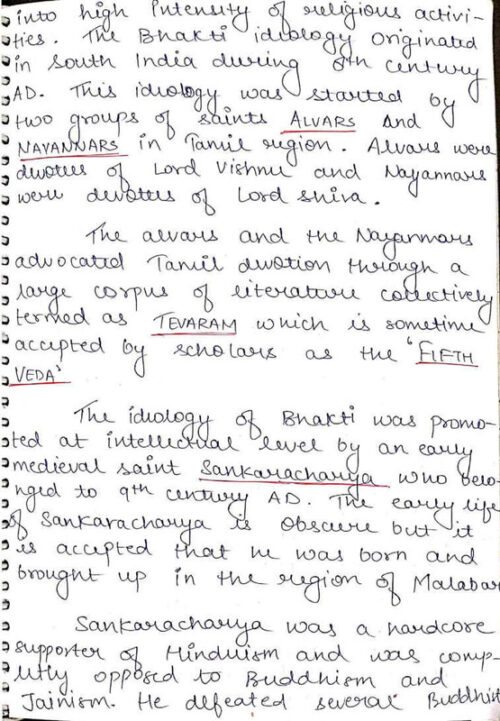 into high intensity of religious activi-
ties. The Bhakti idiology originated
in South India during 8th century
AD. This idiology was started by
two groups of saints ALVARS and
NAYANNARS in Tamil region. Alvars were
devotees of Lord Vishnu and Nayannars
were devotees of Lord Shiva.
The alvars and the Nayannars
advocated Tamil devotion through a
large corpus of literature collectively
termed as TEVARAM which is sometime
accepted by scholars as the 'FIFTH
VEDA'
The idiology of Bhakti was promo-
ted at intellectual level by an early
medieval saint Sankaracharya who belo-
nged to 9th century AD. The early life
of Sankaracharya is obscure but it
is accepted that he was born and
brought up in the region of Malabar
Sankaracharya was a hardcore
supporter of Hinduism and was comp-
letly opposed to Buddhism and
Jainism. He defeated several Buddhist